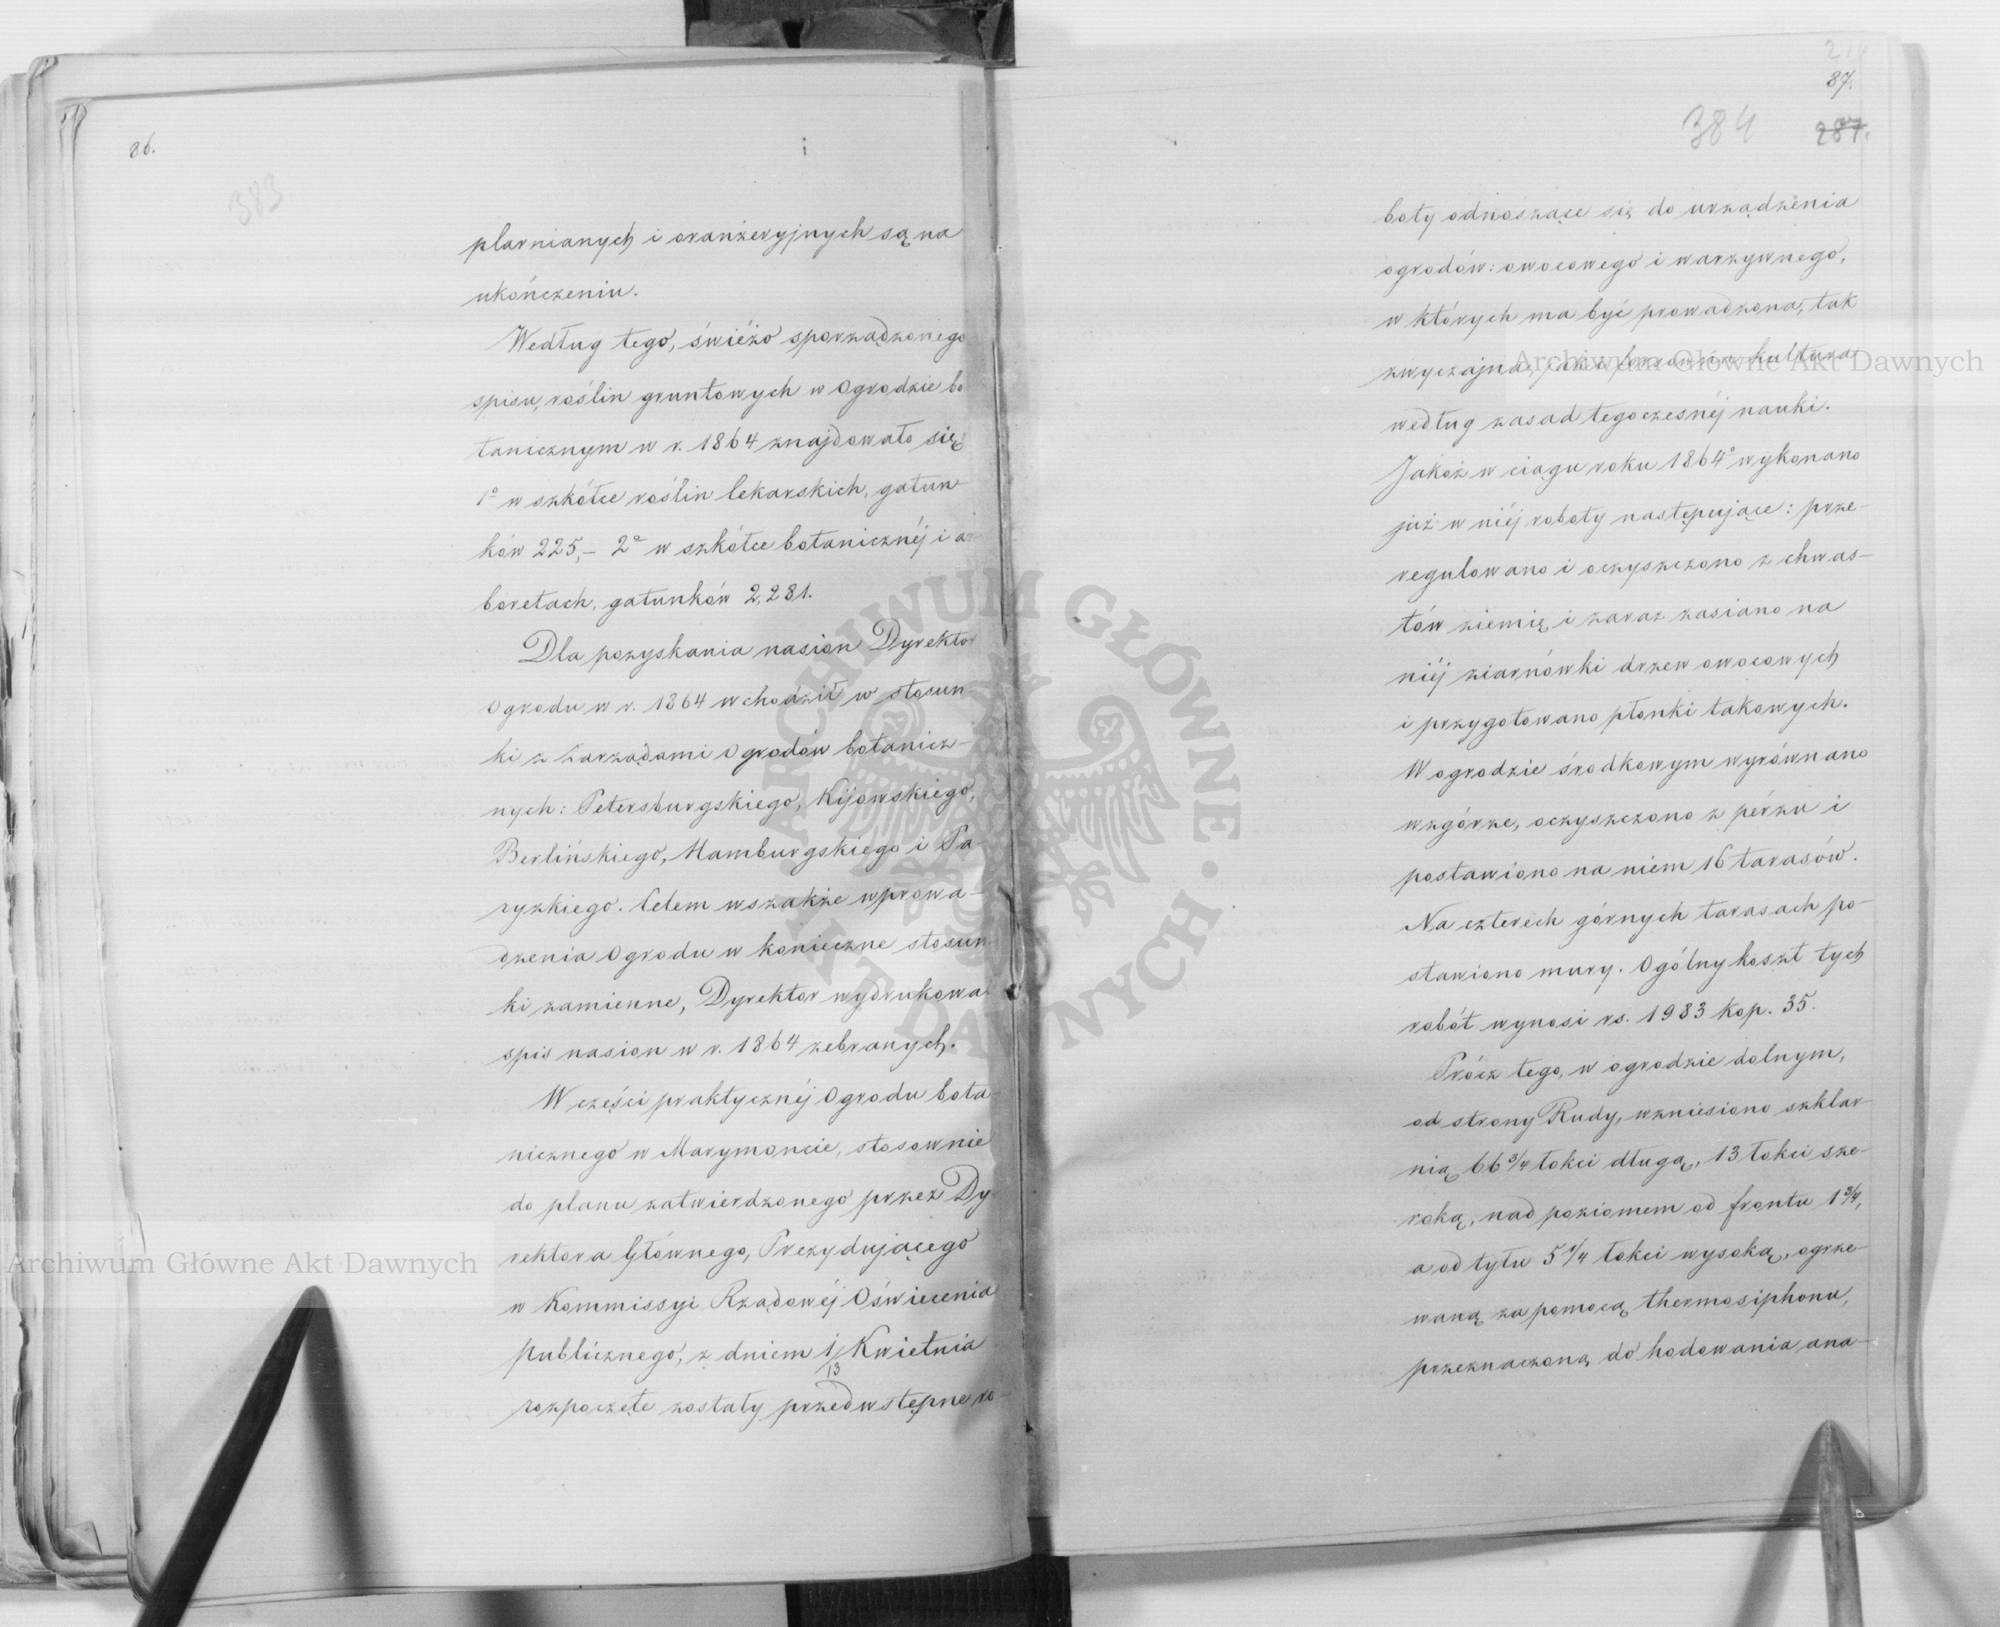 86.
383
plarnianych i oranżeryjnych są na
ukończeniu.
Według tego, świéżo sporządzonego
spisu, roślin gruntowych w Ogrodzie bo
tanicznym w r. 1864 znajdowało się
1º w szkółce roślin lekarskich, gatun
ków 225,– 2º w szkółce botanicznéj i a
boretach, gatunków 2,281.
Dla pozyskania nasion Dyrektor
Ogrodu w r. 1864 wchodził w stosun-
ki z Zarządami Ogrodów botanicz-
nych: Petersburgskiego, Kijowskiego,
Berlińskiego, Hamburgskiego i Pa-
ryzkiego. Celem wszakże wprowa-
dzenia Ogrodu w konieczne stosun-
ki zamienne, Dyrektor wydrukowa
spis nasion w r. 1864 zebranych.
W części praktycznéj Ogrodu bota
nicznego w Marymoncie, stosownie
do planu zatwierdzonego przez Dy
rektora Głównego, Prezydującego
w Kommissyi Rządowéj Oświecenia
publicznego, z dniem 1/13 Kwietnia
rozpoczęte zostały przedwstępne ro-
87.
384
287.
boty odnoszące się do urządzenia
ogrodów: owocowego i warzywnego,
w których ma być prowadzona, tak
zwyczajna, jak i forsowna kultura
według zasad tegoczesnéj nauki.
Jakoż w ciągu roku 1864º wykonano
już w niéj roboty następujące: prze-
regulowano i oczyszczono z chwas-
tów ziemię i zaraz zasiano na
niéj ziarnówki drzew owocowych
i przygotowano płonki takowych.
W ogrodzie środkowym wyrównano
wzgórze, oczyszczono z pérzu i
postawiono na niem 16 tarasów.
Na czterech górnych tarasach po-
stawiono mury. Ogólny koszt tych
robót wynosi rs. 1983 kop. 35.
Prócz tego, w ogrodzie dolnym,
od strony Rudy, wzniesiono szklar-
nią 66 3/4 łokci długą, 13 łokci sze-
roką, nad poziomem od frontu 1 3/4,
a od tyłu 5 1/4 łokci wysoką, ogrze-
waną za pomocą thermosiphonu,
przeznaczoną do hodowania ana-
Archiwum Główne Akt Dawnych
Archiwum Główne Akt Dawnych
ARCHIWUM GŁÓWNE AKT DAWNYCH